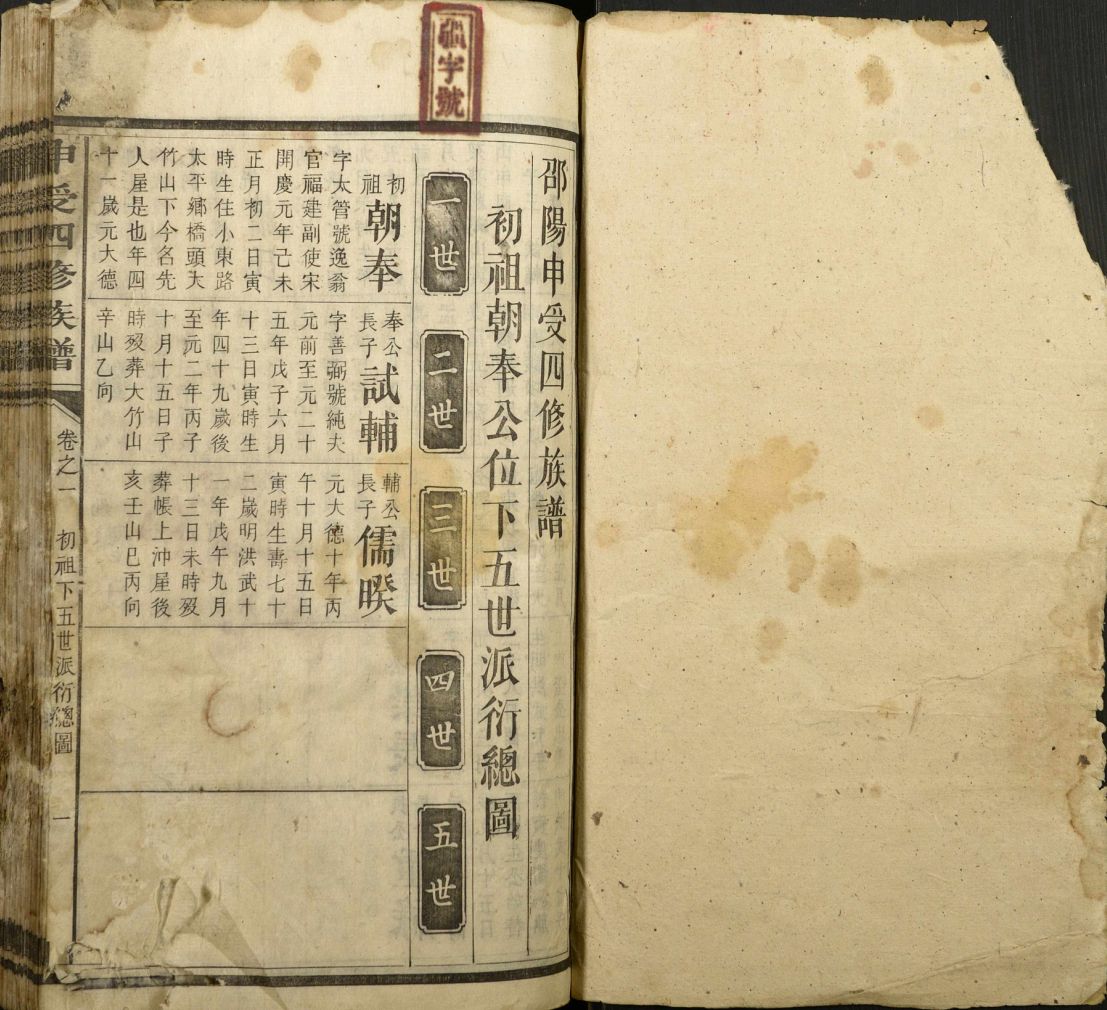 邵陽申受四修族譜
初祖朝奉公位下五世派衍總圖
一世
二世
三世
四世
五世
初祖朝奉
字太管號逸翁
官福建副使宋
開慶元年己未
正月初二日寅
時生住小東路
太平鄉橋頭大
竹山下今名先
人屋是也年四
十一歲元大德
奉公長子試輔
字善弼號純夫
元前至元二十
五年戊子六月
十三日寅時生
年四十九歲後
至元二年丙子
十月十五日子
時歿葬大竹山
辛山乙向
輔公長子儒暌
元大德十年丙
午十月十五日
寅時生壽七十
二歲明洪武十
一年戊午九月
十三日未時歿
葬帳上沖屋後
亥壬山巳丙向
申受四修族譜
卷之一
初祖下五世派衍總圖
一
字號